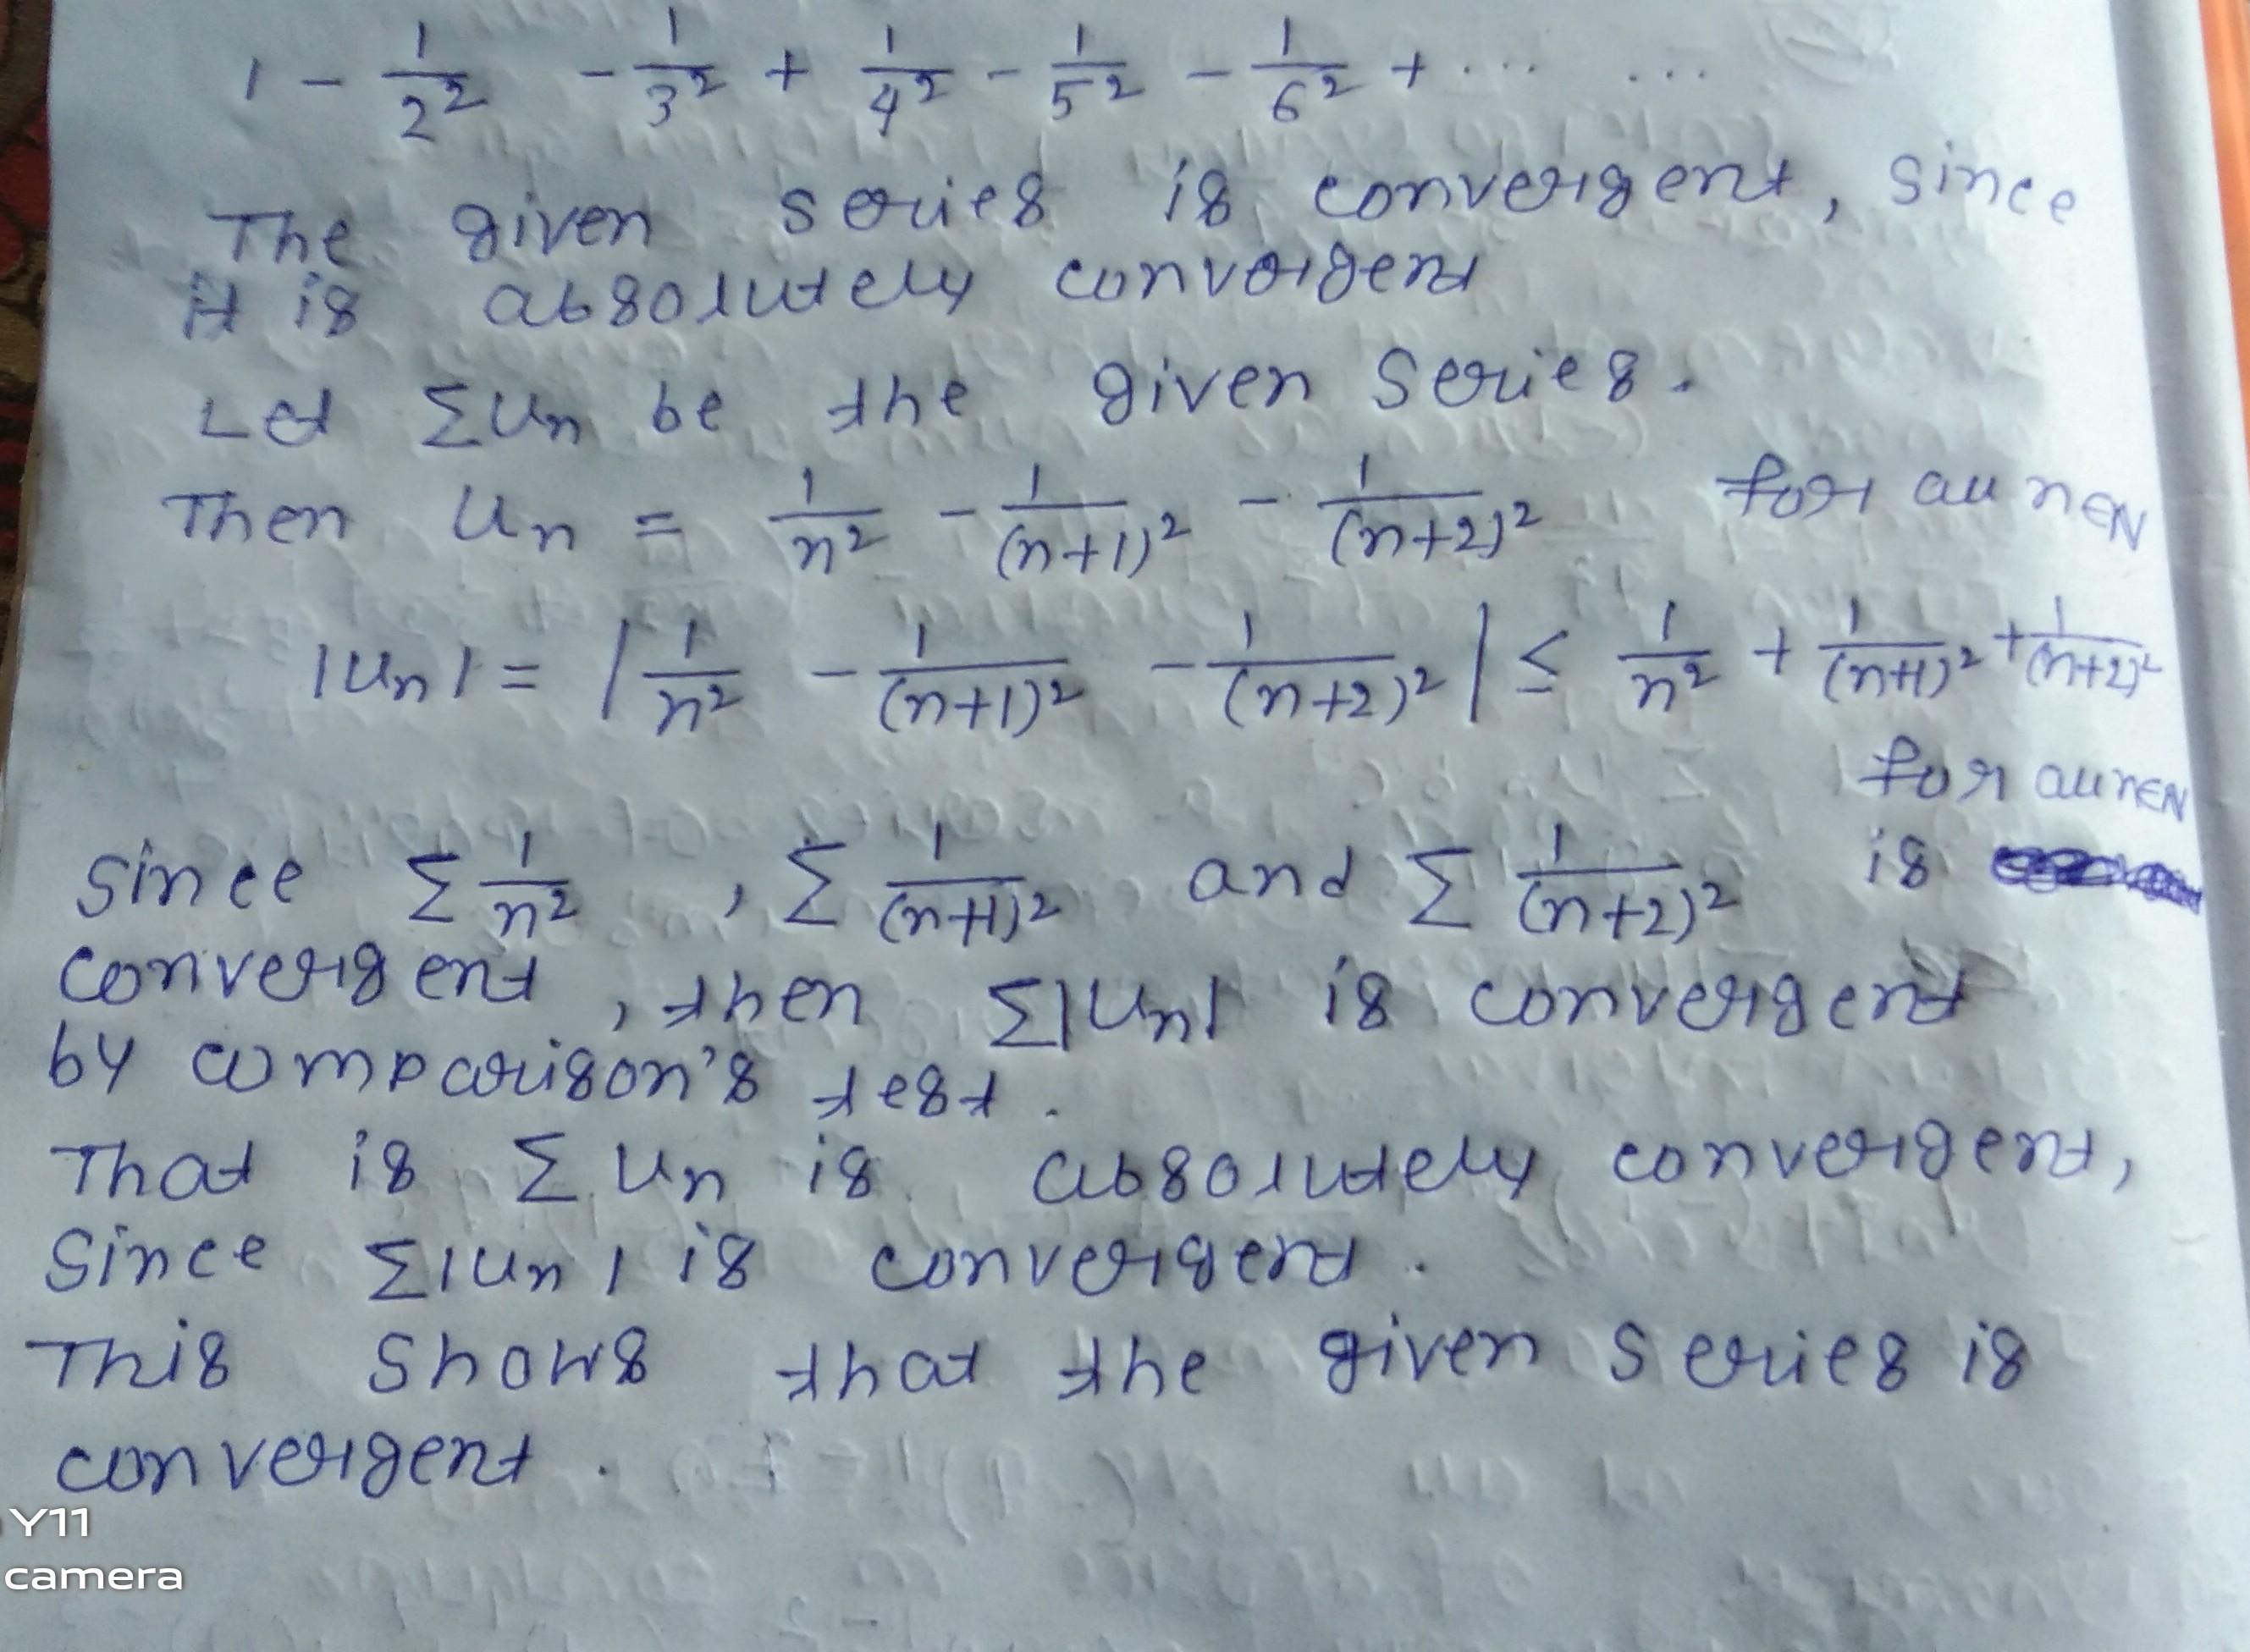 1 - 1/2² - 1/3² + 1/4² - 1/5² - 1/6² + ... ...
The given series is convergent, since
it is absolutely convergent
Let Σun be the given series.
Then Un = 1/n² - 1/(n+1)² - 1/(n+2)² for all n∈N
|Un| = |1/n² - 1/(n+1)² - 1/(n+2)²| ≤ 1/n² + 1/(n+1)² + 1/(n+2)²
for all n∈N
Since Σ 1/n², Σ 1/(n+1)² and Σ 1/(n+2)² is
convergent, then Σ|Un| is convergent
by comparison's test.
That is Σ Un is absolutely convergent,
Since Σ|Un| is convergent.
This shows that the given series is
convergent.
Y11
camera